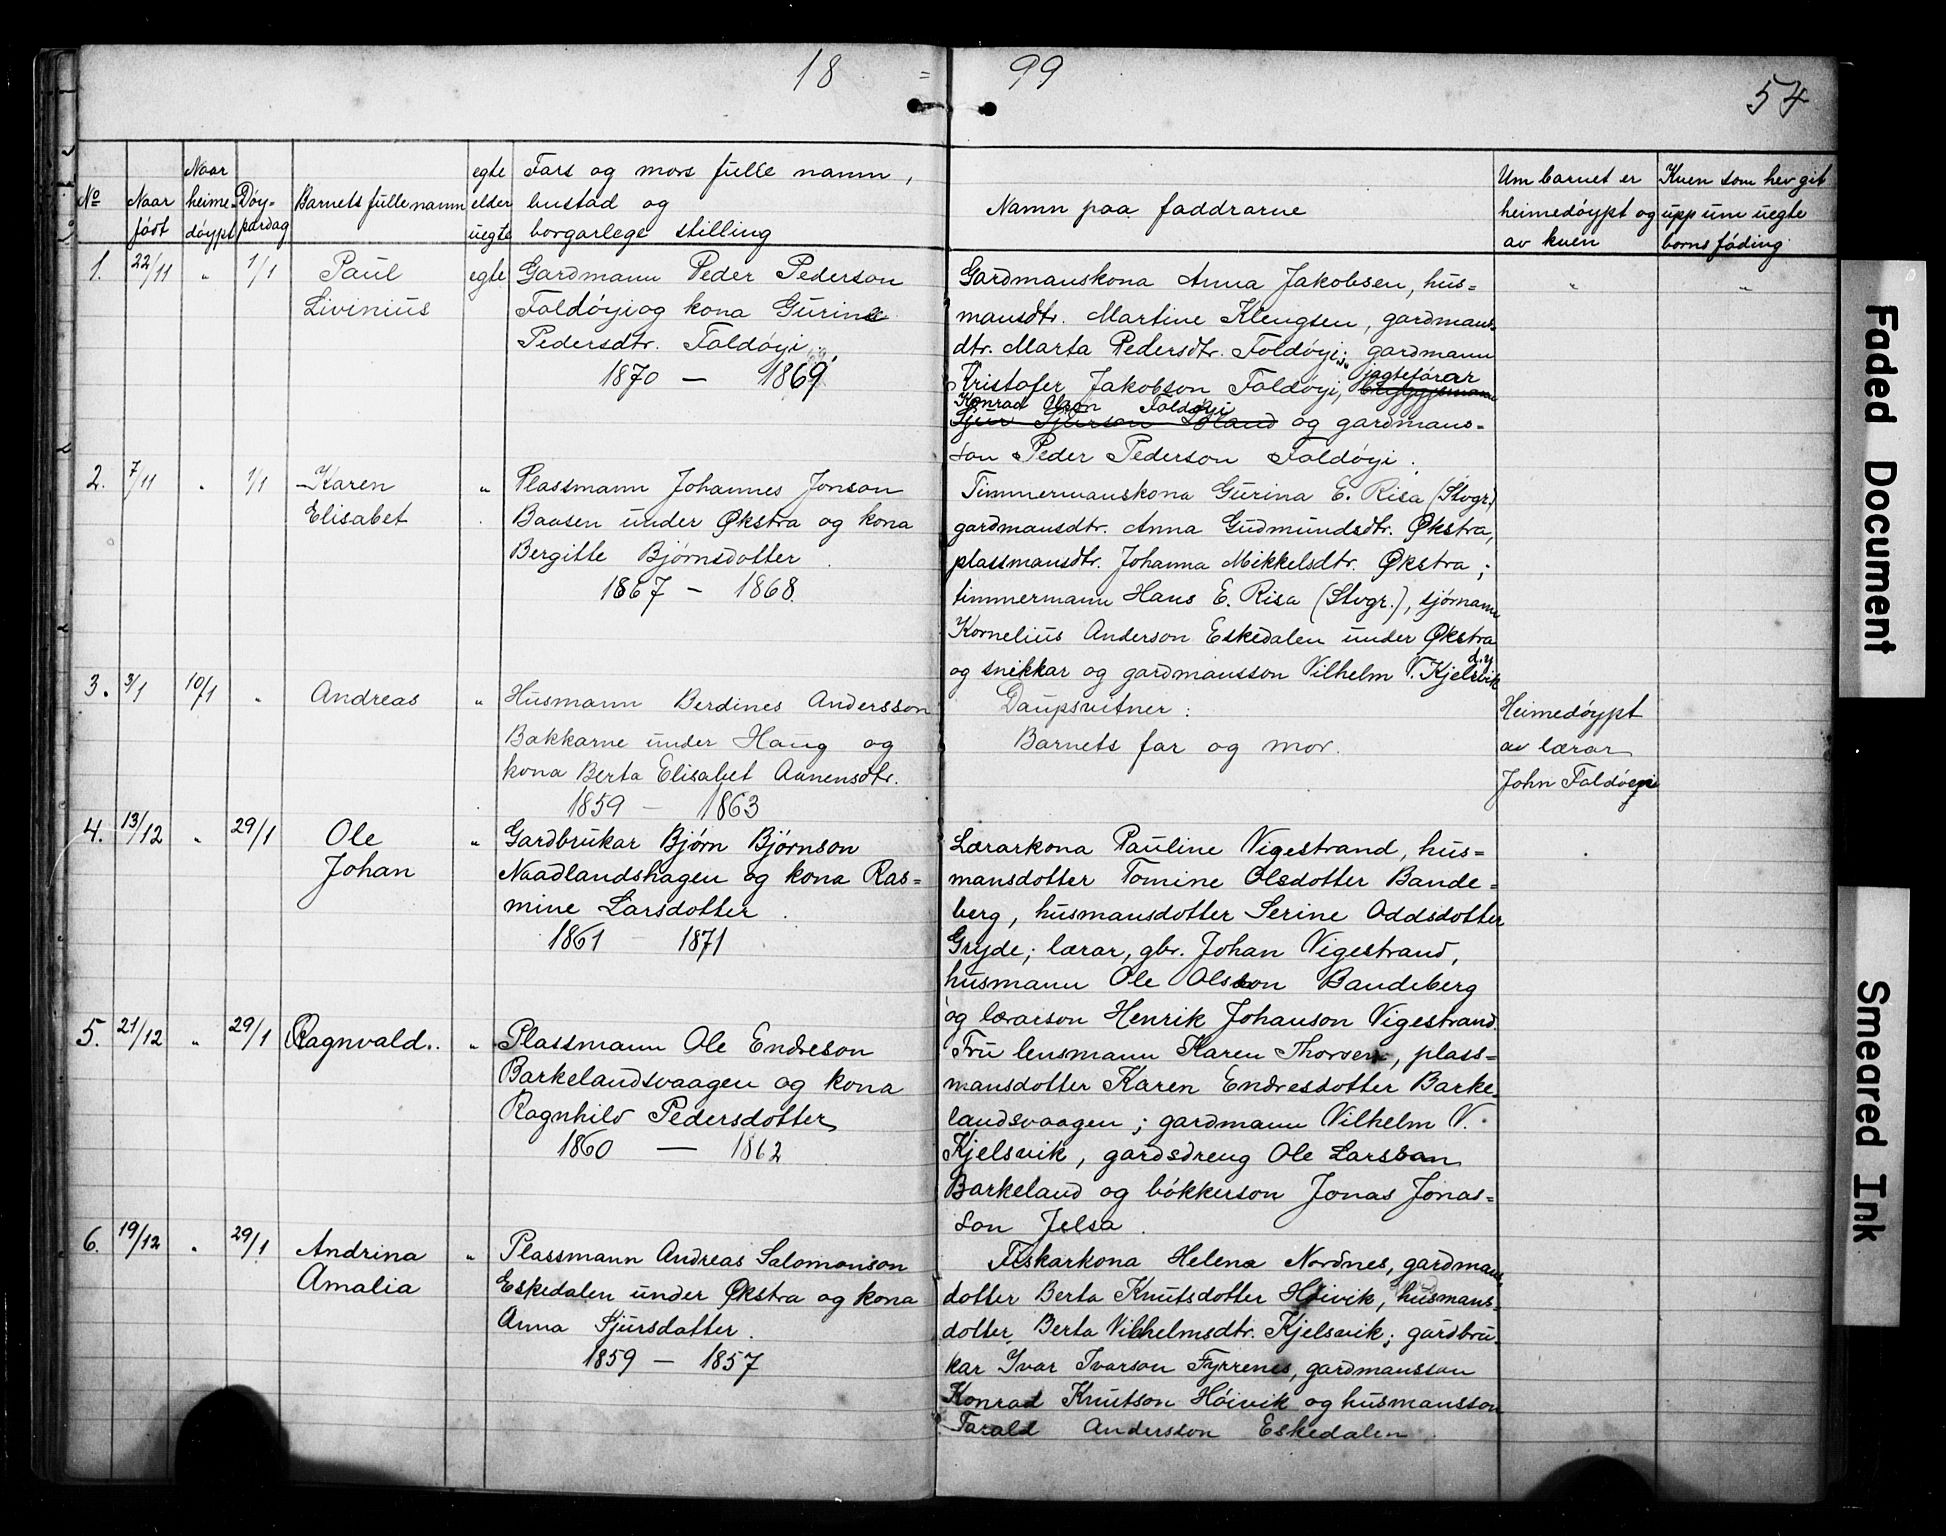 18 = 99
54
No
Naar født
Naar heime- døypt
Døy- pardag
Barnets fulle namn
egte elder uegte
Fars og mors fulle namn, bustad og borgarlege stilling
Namn paa faddrarne
Um barnet er heimedøypt og av kven
Kven som hev git upp um uegte borns føding.
1. 22/11 " 1/1 Paul Livinius egte
Gardmann Peder Pederson
Foldøyi og kona Gurine
Pedersdtr. Foldøyi.
1870 — 1869.
Gardmanskona Anna Jakobsen, hus=
mansdtr. Martine Klengsen, gardmans-
dtr. Marta Pedersdtr. Foldøyi; gardmann
Kristofer Jakobson Foldøyi, jagtefôrar
Konrad Olson Foldøyi og gardmans=
son Peder Pederson Foldøyi.
" "
2. 7/11 " 1/1 Karen Elisabet "
Plassmann Johannes Jonson
Baasen under Økstra og kona
Bergitte Bjørnsdotter.
1867 — 1868.
Timmermanskona Gurina E. Risa (Stvgr.)
gardmansdtr. Anna Gudmundsdtr. Økstra,
plassmansdtr. Johanna Mikkelsdtr. Økstra;
timmermann Hans E. Risa (Stvgr.), sjómann
Kornelius Anderson Eskedalen under Økstra
og snikkar og gardmansson Vilhelm V. Kjelsvik d.y.
3. 3/1 10/1 " Andreas "
Husmann Berdines Andersson
Bakkarne under Haug og
kona Berta Elisabet Aanensdtr.
1859 — 1863
Daupsvitner:
Barnets far og mor.
Heimedøypt
av lærar
John Foldøyi
4. 13/12 " 29/1 Ole Johan "
Gardbrukar Bjørn Bjørnson
Naadlandshagen og kona Ras=
mine Larsdotter.
1861 — 1871
Lærarkona Pauline Vigestrand, hus=
mansdotter Tomine Olsdotter Bande=
berg, husmansdotter Serine Oddsdotter
Gryde; lærar, gbr. Johan Vigestrand,
husmann Ole Olsson Bandeberg
og lærarson Henrik Johanson Vigestrand.
5. 21/12 " 29/1 Ragnvald. "
Plassmann Ole Endreson
Barkelandsvaagen og kona
Ragnhild Pedersdotter
1860 — 1862
Fru lensmann Karen Thorsen, plass=
mansdotter Karen Endresdotter Barke-
landsvaagen; gardmann Vilhelm V.
Kjelsvik, gardsdreng Ole Larsson
Barkeland og bókkerson Jonas Jonas=
son Jelsa.
6. 19/12 " 29/1 Andrina Amalia "
Plassmann Andreas Salomonson
Eskedalen under Økstra og kona
Anna Sjursdatter.
1859 — 1857
Fiskarkona Helena Nordnes, gardmans-
dotter Berta Knutsdotter Høivik, husmans-
dotter Berta Vilhelmsdtr. Kjelsvik; gardbru-
kar Ivar Ivarson Fyrrenes, gardmansson
Konrad Knutson Høivik og husmansson
Tarald Andersson Eskedalen.
Faded Document
Smeared Ink